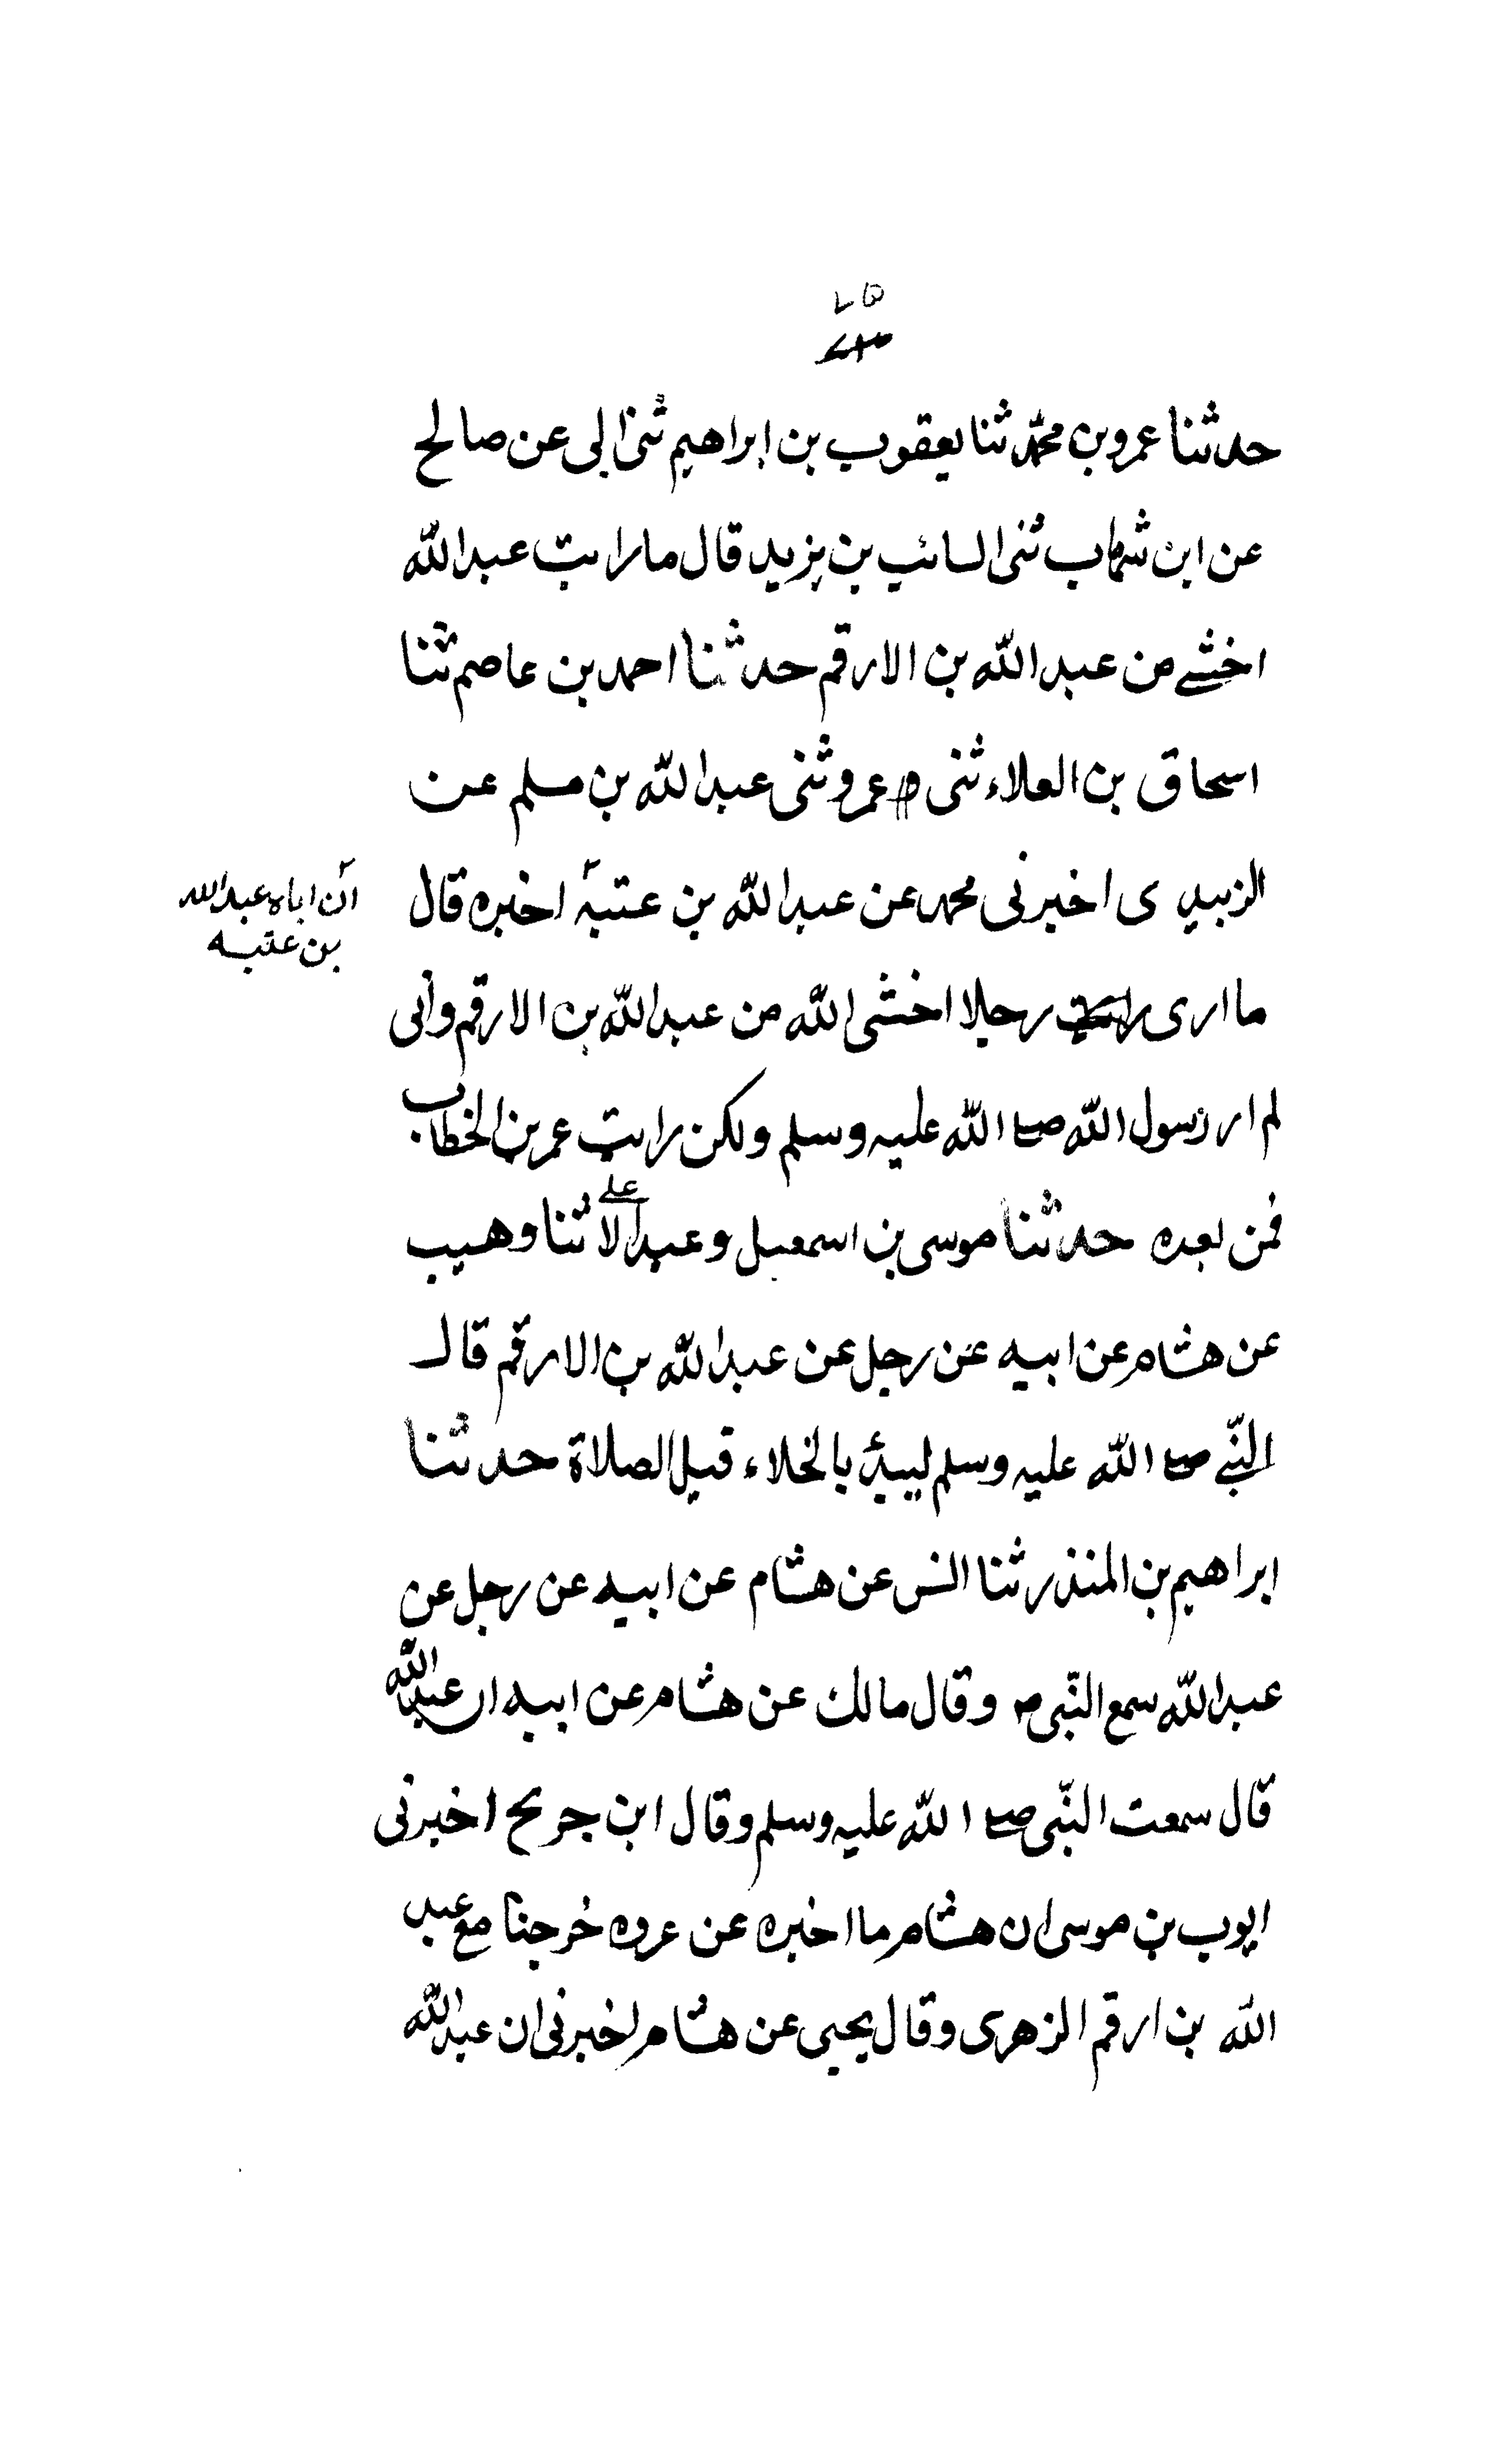 حدثنا عمرو بن محمّد ثنا يعقوب بن ابراهيم ثنى ابى عن صالح
عن ابن شهاب ثنى السائب بن يزيد قال ما رايت عبد اللّه
اخشے من عبد اللّه بن الارقم حدثنا احمد بن عاصم ثنا
اسحاق بن العلاء ثنى عمرو ثنى عبد اللّه بن مسلم عن
الزبيدى اخبرنى محمد عن عبد اللّه بن عتبۃ اخبره قال
انّ اباه عبد الله
بن عتبه
ما ارى رجلا اخشى اللّه من عبد اللّه بن الارقم وانى
لم ار رسول اللّه صلے اللّه عليه وسلم ولكن رايت عمر بن الخطاب
فمن بعده حدثنا موسى بن اسمعيل وعبد الاعلے ثنا وهيب
عن هشام عن ابيه عن رجل عن عبد اللّه بن الارقم قال
النّبے صلے اللّه عليه وسلم ليبدٔ بالخلاء قبل الصلاة حدثنا
ابراهيم بن المنذر ثنا انس عن هشام عن ابيه عن رجل عن
عبد اللّه سمع النّبى ص وقال مالك عن هشام عن ابيه ان عبد اللّه
قال سمعت النّبى صلے اللّه عليه وسلم وقال ابن جريج اخبرنى
ايوب بن موسى ان هشام ما اخبره عن عروه خرجنا مع عبد
اللّه بن ارقم الزهرى وقال يحيى عن هشام اخبرنى ان عبد اللّه